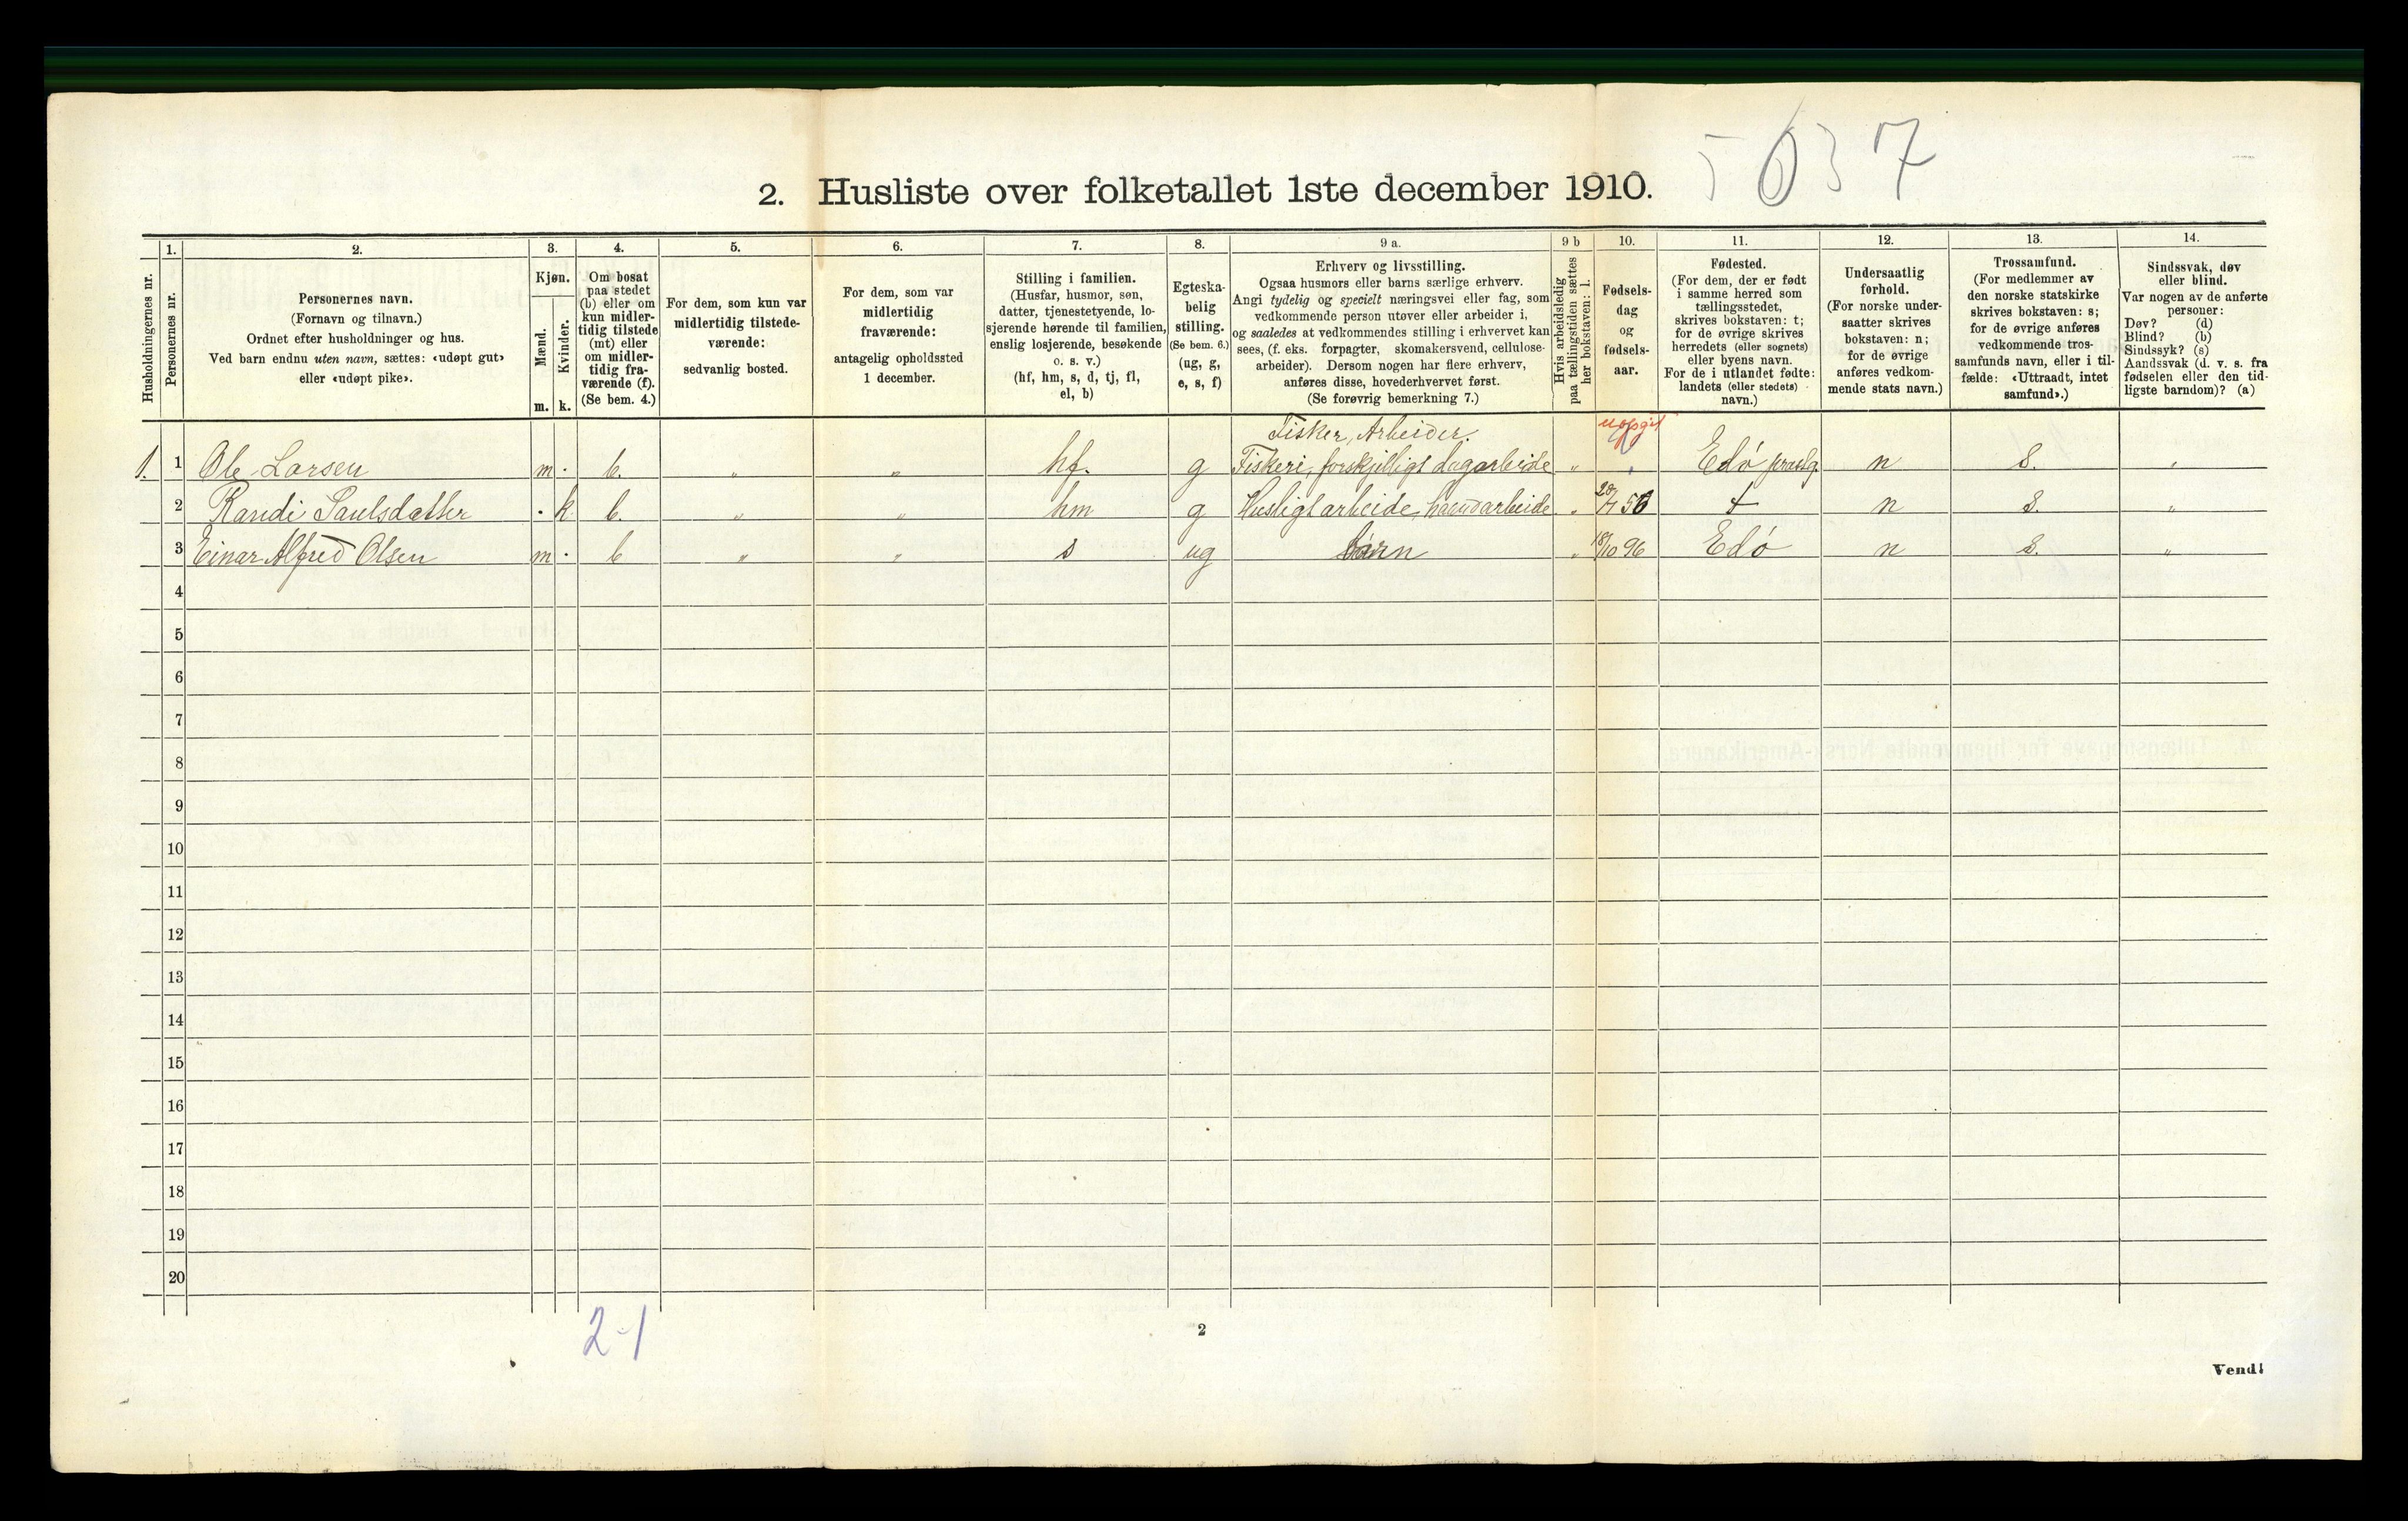 5037
2. Husliste over folketallet 1ste december 1910.
Husholdningernes nr.
1.
Personernes nr.
2.
Personernes navn.
(Fornavn og tilnavn.)
Ordnet efter husholdninger og hus.
Ved barn endnu uten navn, sættes: «udøpt gut»
eller «udøpt pike».
3.
Kjøn.
Mænd.
Kvinder.
m. k.
4.
Om bosat
paa stedet
(b) eller om
kun midler-
tidig tilstede
(mt) eller
om midler-
tidig fra-
værende (f).
(Se bem. 4.)
5.
For dem, som kun var
midlertidig tilstede-
værende:
sedvanlig bosted.
6.
For dem, som var
midlertidig
fraværende:
antagelig opholdssted
1 december.
7.
Stilling i familien.
(Husfar, husmor, søn,
datter, tjenestetyende, lo-
sjerende hørende til familien,
enslig losjerende, besøkende
o. s. v.)
(hf, hm, s, d, tj, fl,
el, b)
8.
Egteska-
belig
stilling.
(Se bem. 6.)
(ug, g,
e, s, f)
9 a.
Erhverv og livsstilling.
Ogsaa husmors eller barns særlige erhverv.
Angi tydelig og specielt næringsvei eller fag, som
vedkommende person utøver eller arbeider i,
og saaledes at vedkommendes stilling i erhvervet kan
sees, (f. eks. forpagter, skomakersvend, cellulose-
arbeider). Dersom nogen har flere erhverv,
anføres disse, hovederhvervet først.
(Se forøvrig bemerkning 7.)
9 b
Hvis arbeidsledig
paa tællingstiden sættes
her bokstaven: l.
10.
Fødsels-
dag
og
fødsels-
aar.
11.
Fødested.
(For dem, der er født
i samme herred som
tællingsstedet,
skrives bokstaven: t;
for de øvrige skrives
herredets (eller sognets)
eller byens navn.
For de i utlandet fødte:
landets (eller stedets)
navn.)
12.
Undersaatlig
forhold.
(For norske under-
saatter skrives
bokstaven: n;
for de øvrige
anføres vedkom-
mende stats navn.)
13.
Trossamfund.
(For medlemmer av
den norske statskirke
skrives bokstaven: s;
for de øvrige anføres
vedkommende tros-
samfunds navn, eller i til-
fælde: «Uttraadt, intet
samfund».)
14.
Sindssvak, døv
eller blind.
Var nogen av de anførte
personer:
Døv? (d)
Blind? (b)
Sindssyk? (s)
Aandssvak (d. v. s. fra
fødselen eller den tid-
ligste barndom)? (a)
Fisker, Arbeider. uopgit
1. 1 Ole Larsen m · b. " " hf. g Fiskeri, forskjelligt dagarbeide " Edø præstg. n s. "
2 Randi Paulsdatter · k b. " " hm g Husligt arbeide, haandarbeide " t n s. "
3 Einar Alfred Olsen m · b " " s ug barn " 18/10 96 Edø n s. "
4
5
6
7
8
9
10
11
12
13
14
15
16
17
18
19
20
2-1
2
Vend!